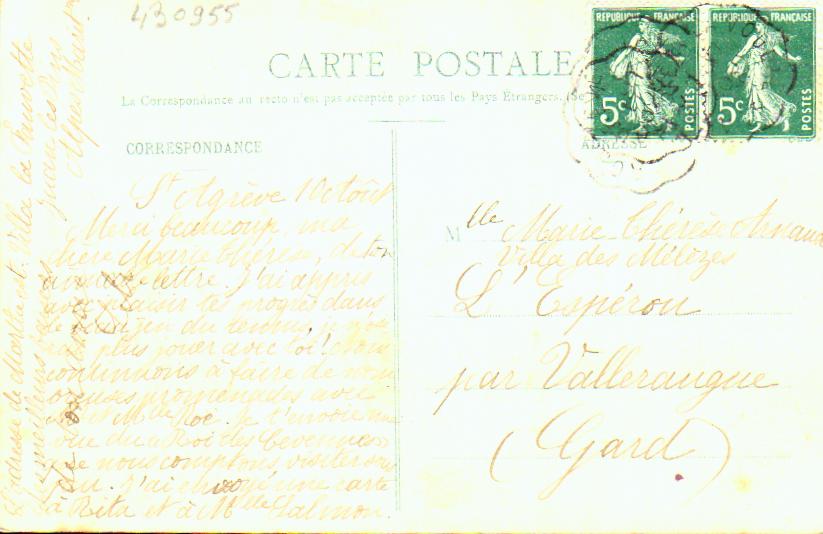 430955
CARTE POSTALE
La Correspondance au recto n'est pas acceptée par tous les Pays Étrangers. (Se
CORRESPONDANCE
ADRESSE
RÉPUBLIQUE FRANÇAISE
5c
POSTES
RÉPUBLIQUE FRANÇAISE
5c
POSTES
St Agrève 10 Août
Merci beaucoup, ma
chère Marie Thérèse, de ton
lettre. J'ai appris
avec plaisir tes progrès dans
le du tennis, je n'ose
plus jouer avec toi! Nous
continuons à faire de nom
breuses promenades avec
et Mlle Roé. Je t'envoie une
vue du "Roi des Cévennes"
que nous comptons visiter
J'ai envoyé une carte
à Rita et à Mlle Salmon.
L'adresse de Martha est: Villa la Fauvette
Juan les Pins
Alpes Marit
meilleurs baisers
Mlle Marie Thérèse Arnaud
Villa des Mélèzes
L'Espérou
par Valleraugue
(Gard)